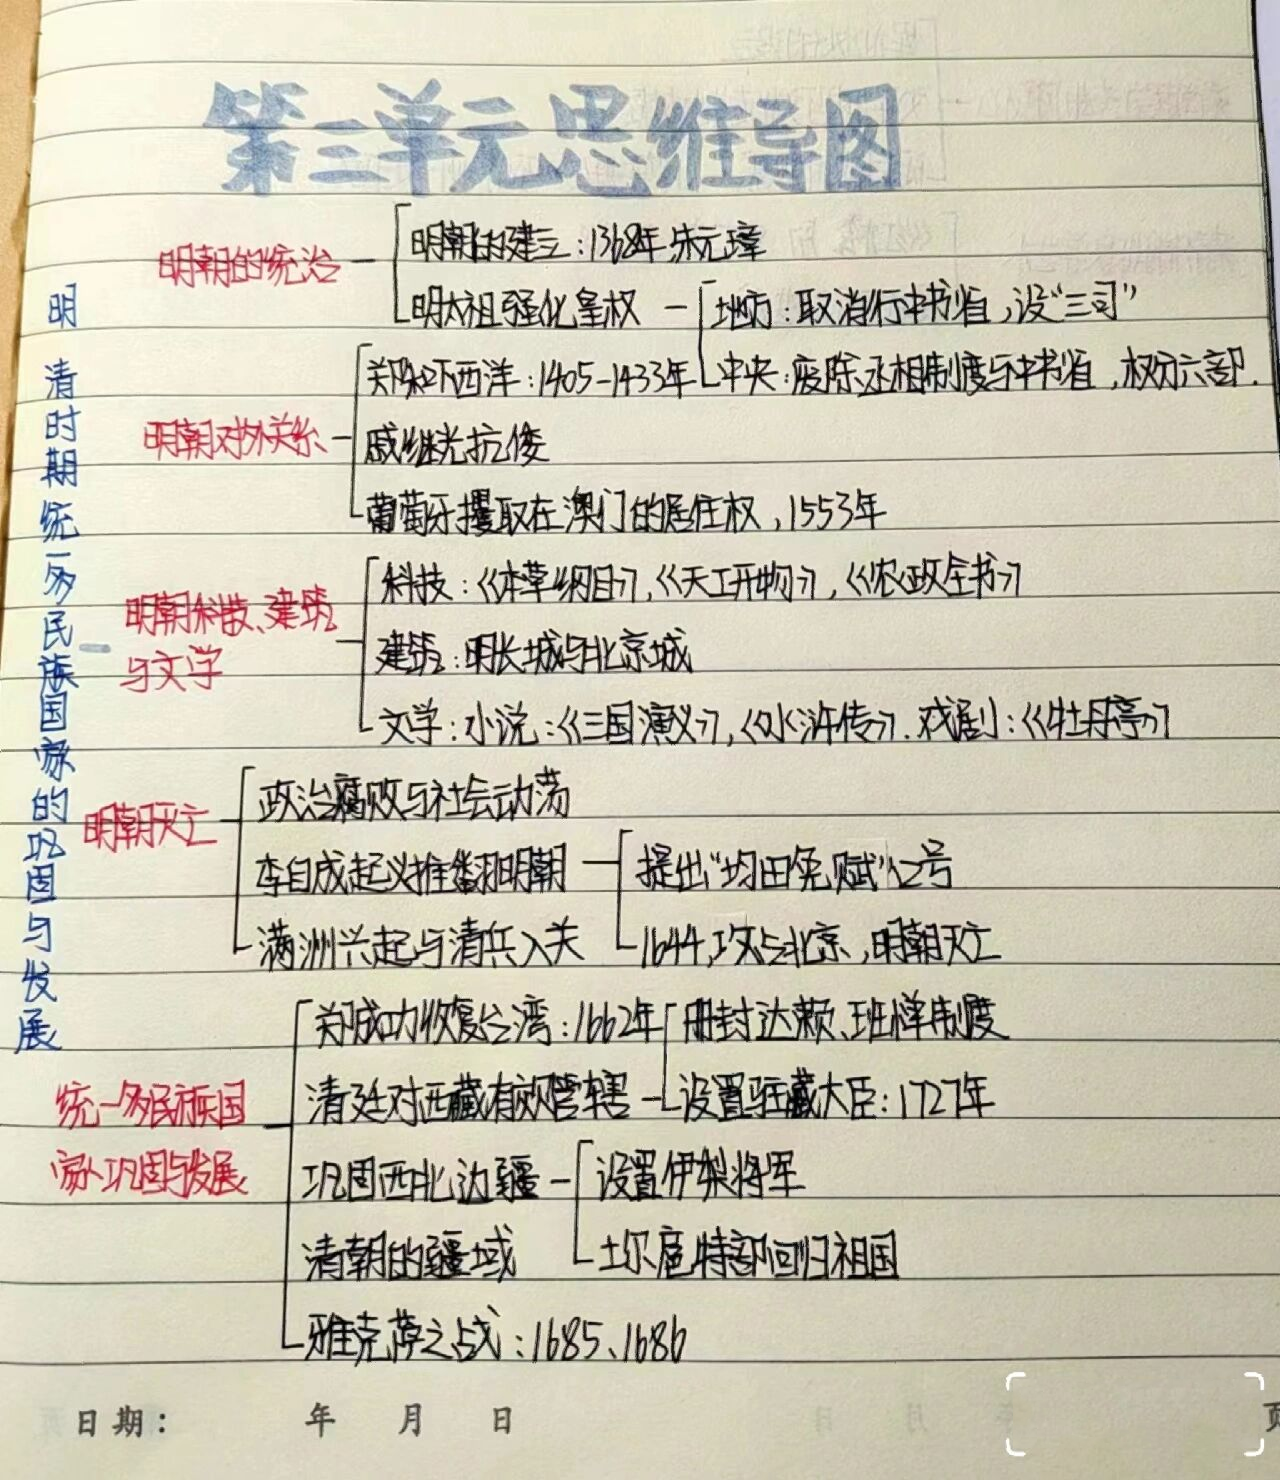 第三单元思维导图
明清时期统一多民族国家的巩固与发展
明朝的统治
明朝的建立：1368年朱元璋
明太祖强化皇权
地方：取消行中书省，设“三司”
中央：废除丞相制度与中书省，权分六部.
明朝对外关系
郑和下西洋：1405-1433年
戚继光抗倭
葡萄牙攫取在澳门的居住权，1553年
明朝科技、建筑
与文学
科技：《本草纲目》，《天工开物》，《农政全书》
建筑：明长城与北京城
文学：小说：《三国演义》，《水浒传》.戏剧：《牡丹亭》
明朝灭亡
政治腐败与社会动荡
李自成起义推翻明朝
提出“均田免赋”口号
1644，攻占北京，明朝灭亡
满洲兴起与清兵入关
统一多民族国
家巩固与发展
郑成功收复台湾：1662年
清廷对西藏有效管辖
册封达赖、班禅制度
设置驻藏大臣：1727年
巩固西北边疆
设置伊犁将军
土尔扈特部回归祖国
清朝的疆域
雅克萨之战：1685、1686
日期： 年 月 日
页